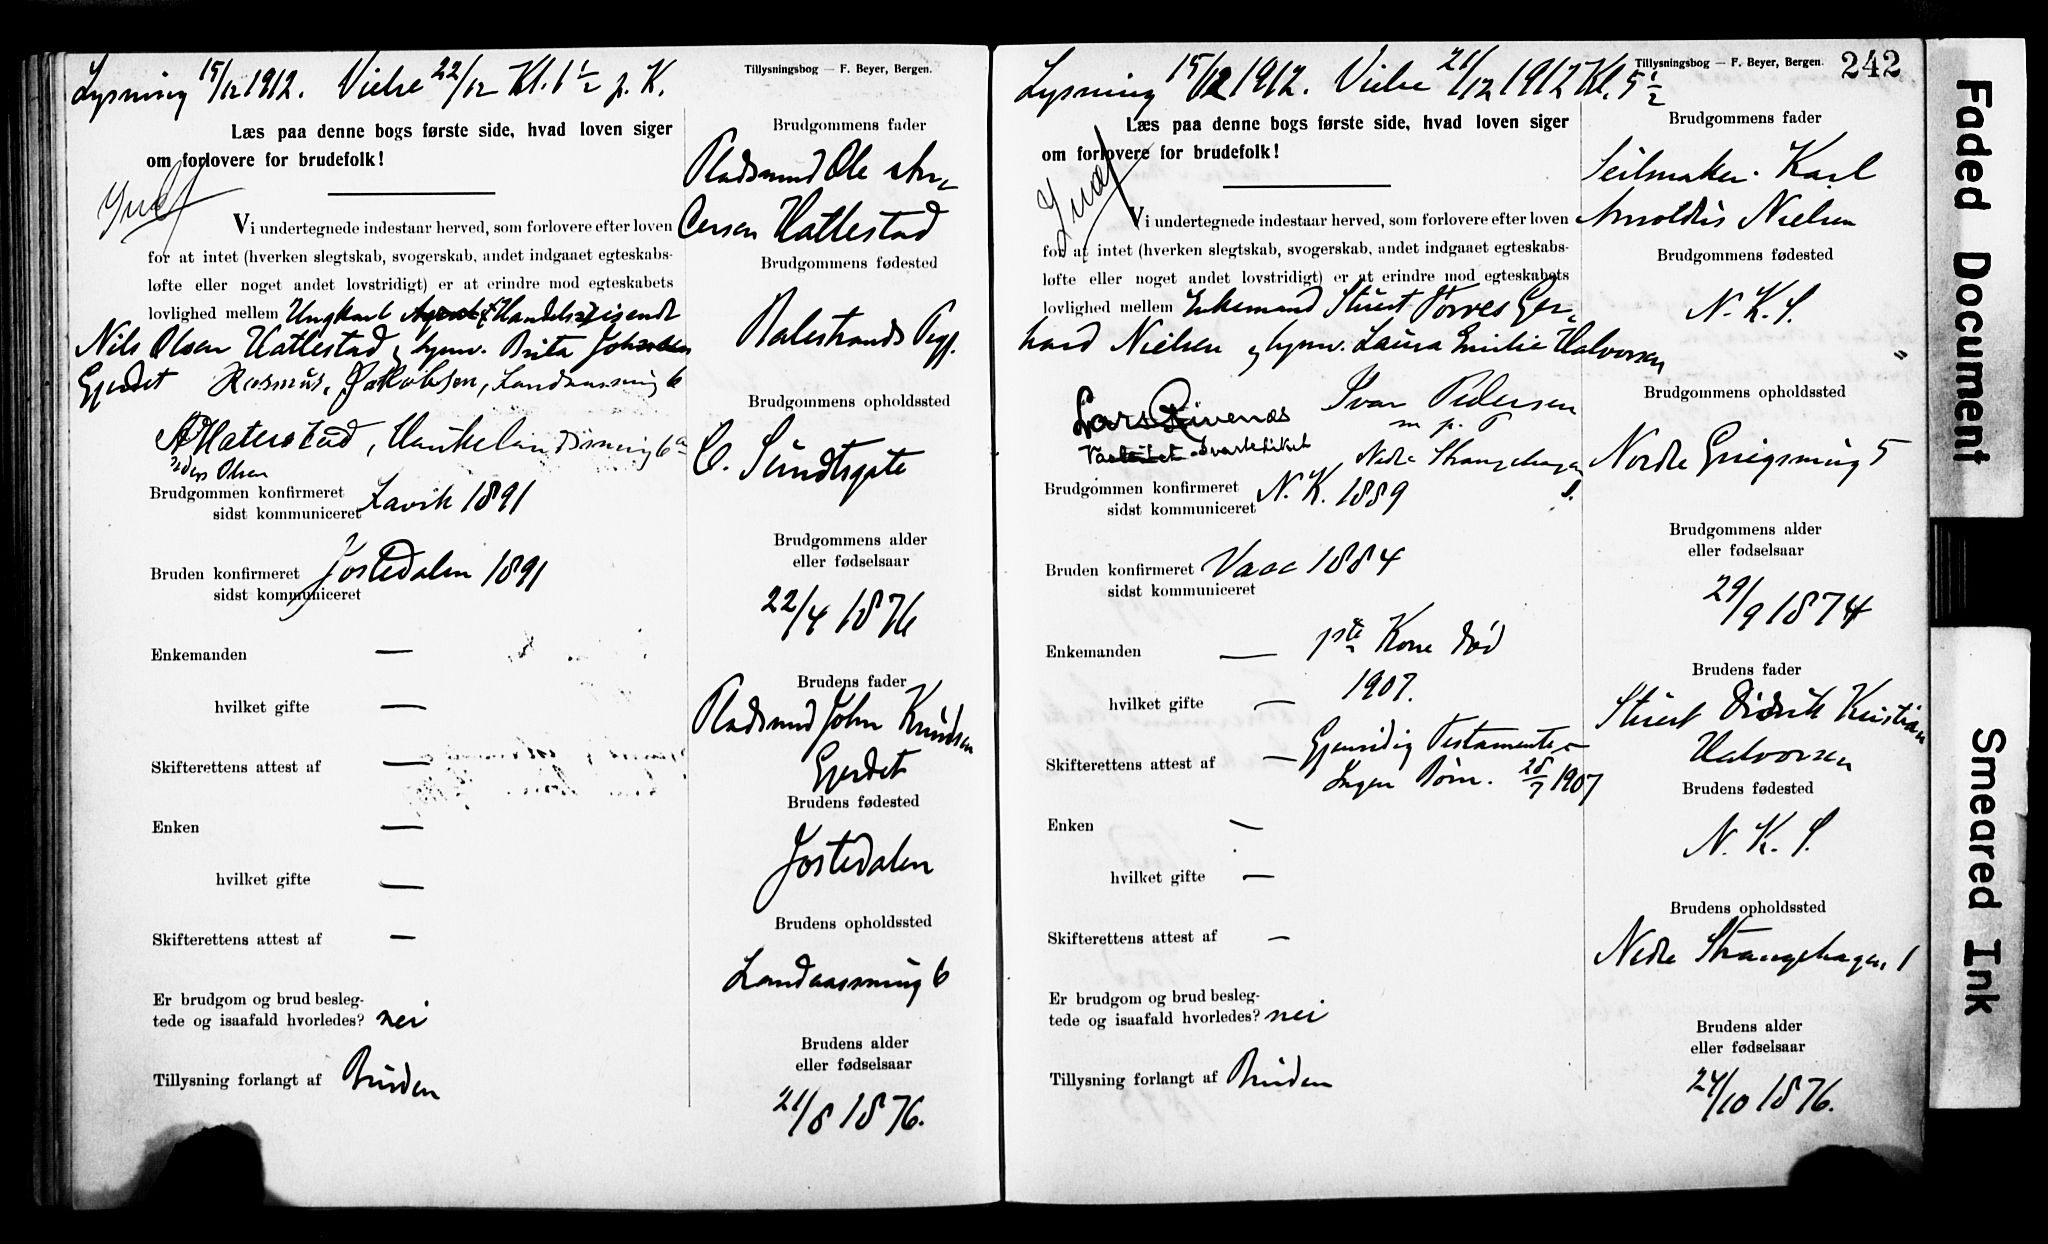 Lysning 15/12 1912. Vielse 22/12 Kl. 6 1/2 J. K.
Tillysningsbog — F. Beyer, Bergen.
Læs paa denne bogs første side, hvad loven siger
om forlovere for brudefolk!
Vi undertegnede indestaar herved, som forlovere efter loven
for at intet (hverken slegtskab, svogerskab, andet indgaaet egteskabs-
løfte eller noget andet lovstridigt) er at erindre mod egteskabets
lovlighed mellem Ungkarl Handelsreisende
Nils Olsen Hatlestad og Pike. Brita Johnsen
Gjerdet Rasmus Jakobsen, Landaasmung 6
Haukelandsmung 6
Olsen
Brudgommen konfirmeret Lavik 1891
sidst kommuniceret
Bruden konfirmeret Jostedalen 1891
sidst kommuniceret
Enkemanden —
hvilket gifte —
Skifterettens attest af —
Enken —
hvilket gifte —
Skifterettens attest af —
Er brudgom og brud besleg-
tede og isaafald hvorledes? nei
Tillysning forlangt af Bruden
Brudgommens fader
Pladsmand Ole
Hatlestad
Brudgommens fødested
Balestrands Pgj.
Brudgommens opholdssted
C. Sundtsgate
Brudgommens alder
eller fødselsaar
22/4 1876
Brudens fader
Pladsmand John Knudsen
Gjerdet
Brudens fødested
Jostedalen
Brudens opholdssted
Landaasmung 6
Brudens alder
eller fødselsaar
21/8 1876.
Lysning 15/12 1912. Vielse 21/12 1912 Kl. 5 1/2
Tillysningsbog — F. Beyer, Bergen.
242
Læs paa denne bogs første side, hvad loven siger
om forlovere for brudefolk!
Vi undertegnede indestaar herved, som forlovere efter loven
for at intet (hverken slegtskab, svogerskab, andet indgaaet egteskabs-
løfte eller noget andet lovstridigt) er at erindre mod egteskabets
lovlighed mellem Enkemand Stuert Torres Ger-
hard Nielsen og Laura Emilie Halvorsen
Lars Ivar Pedersen
m. p. P
Nedre Strangehagen
1.
Brudgommen konfirmeret N. K. 1889
sidst kommuniceret
Bruden konfirmeret 1884
sidst kommuniceret
Enkemanden — 1ste Kone død
hvilket gifte — 1907.
Skifterettens attest af — Gjensidig Testamente
Ingen Børn. 1907
Enken —
hvilket gifte —
Skifterettens attest af —
Er brudgom og brud besleg-
tede og isaafald hvorledes? nei
Tillysning forlangt af Bruden
Brudgommens fader
Seilmaker. Karl
Arnoldus Nielsen
Brudgommens fødested
N. K. S.
Brudgommens opholdssted
Nordre 5
Brudgommens alder
eller fødselsaar
29/9 1874
Brudens fader
Stuert Didrik Kristian
Halvorsen
Brudens fødested
N. K. S.
Brudens opholdssted
Nedre Strangehagen 1
Brudens alder
eller fødselsaar
24/10 1876.
Faded Document
Smeared Ink